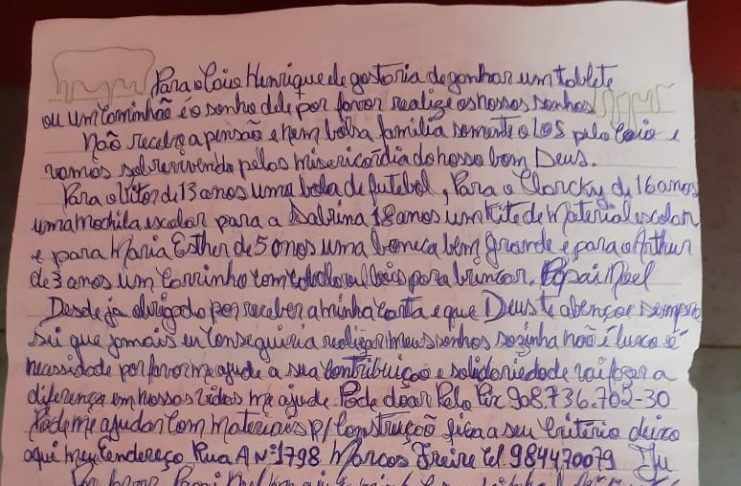 Para o Caio Henrique de gostoria de ganhar um tablete
ou um Caminhão é o sonho dele por favor realize os nossos sonhos
não recebo a pensão e nem bolsa familia somente o LOS pelo Caio e
vamos sobrevivendo pelas misericordia do nosso bom Deus.
Para o Vitor de 13 anos uma bola de futebol, Para o Clarcky de 16 anos
uma mochila escolar para a Sabrina 18 anos um Kite de Material escolar
e para Maria Esther de 5 anos uma boneca bem grande e para o Arthur
de 3 anos um Carrinho com para brincar. Papai Noel
Desde ja obrigado por receber a minha Carta e que Deus te abençoe sempre
sei que jamais eu Conseguiria realizar meus sonhos sozinha não é luxo é
necessidade por favor me ajude a sua Contribuiçao e solidariedade vai fazer a
diferença em nossas vidas me ajude Pode doar Pelo Pix 908.736.702-30
Pode me ajudar Com Materiais p/ Construçaõ fica a seu Criterio deixo
aqui meu Endereço Rua A Nº 1798 Marcos Freire tel 984470079
Por favor Papai Noel